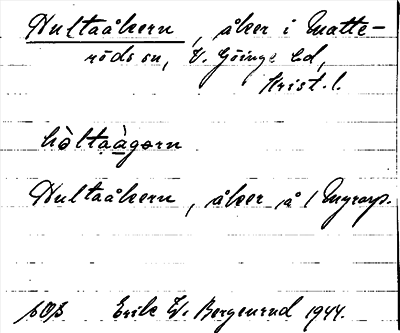 Hultaåkern, åker i Matte-
röds sn, V. Göinge hd,
Krist. l.
hòltaàgərn
Hultaåkern, åker på 1 Myrarp.
Erik W. Bergenrud 1944.